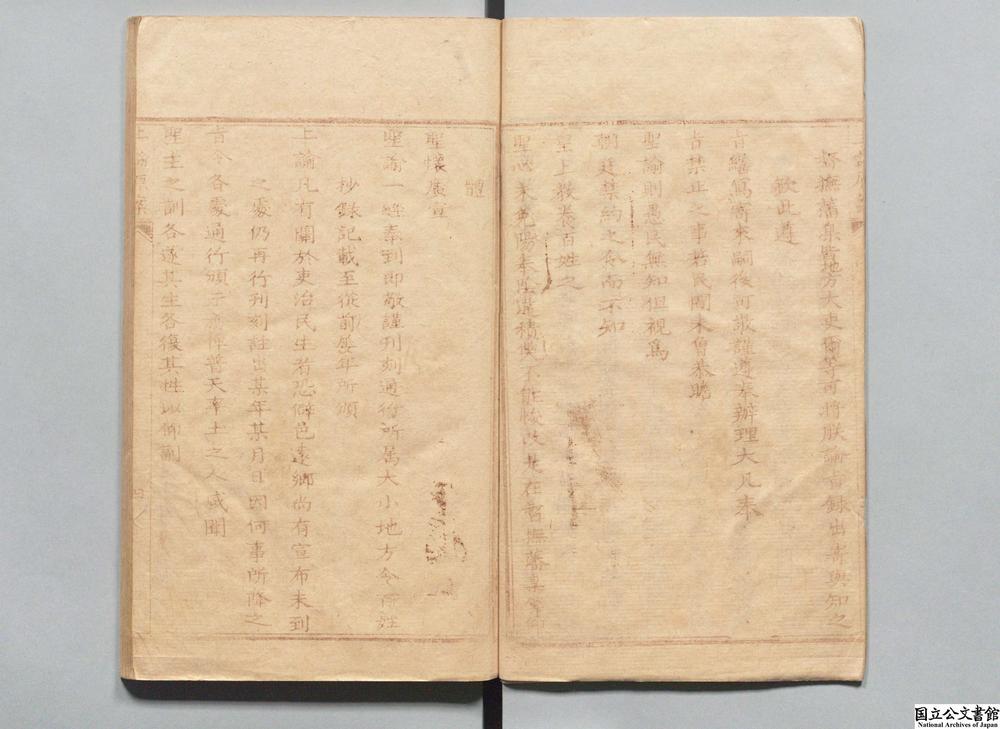 督撫藩臬皆地方大吏爾等可將朕諭旨錄出寄與知之
欽此遵
旨繕寫寄來嗣後可敬謹遵奉辦理大凡奉
旨禁止之事若民間未曾恭瞻
聖諭則愚民無知但視為
朝廷禁約之
而不知
皇上教養百姓之
聖心
在督撫藩臬
體
聖懷廣宣
聖諭一經奉到即敬謹刊刻通行所屬大小地方令
抄錄記載至從前歷年所頒
上諭凡有關於吏治民生者恐僻邑遠鄉尚有宣布未到
之處仍再行刊刻註出某年某月日因何事所降之
旨令各處通行頒示
普天率土之人咸聞
聖主之訓各遂其生各復其性以仰副
国立公文書館
National Archives of Japan